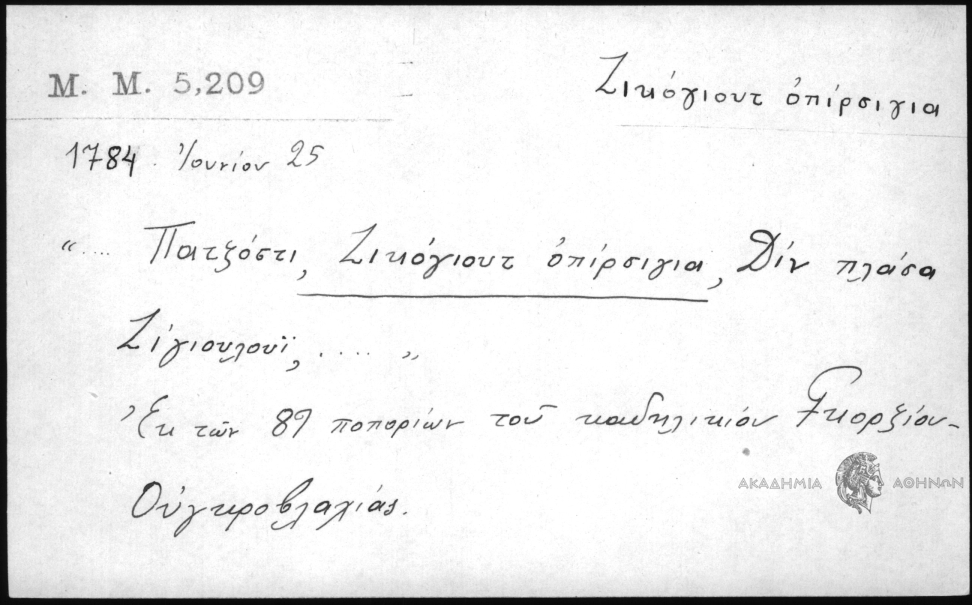 Μ. Μ. 5,209
Ζικόγιουτ ὀπίρσιγια
1784. Ἰουνίου 25
“.... Πατζόστι, Ζικόγιουτ ὀπίρσιγια, Δίν πλάσα
Ζίγιουλουϊ, ..... „
Ἐκ τῶν 89 ποποριών τοῦ καδηλικιόυ Γκορζίου-
Οὑγκροβλαχίας.
ΑΚΑΔΗΜΙΑ ΑΘΗΝΩΝ